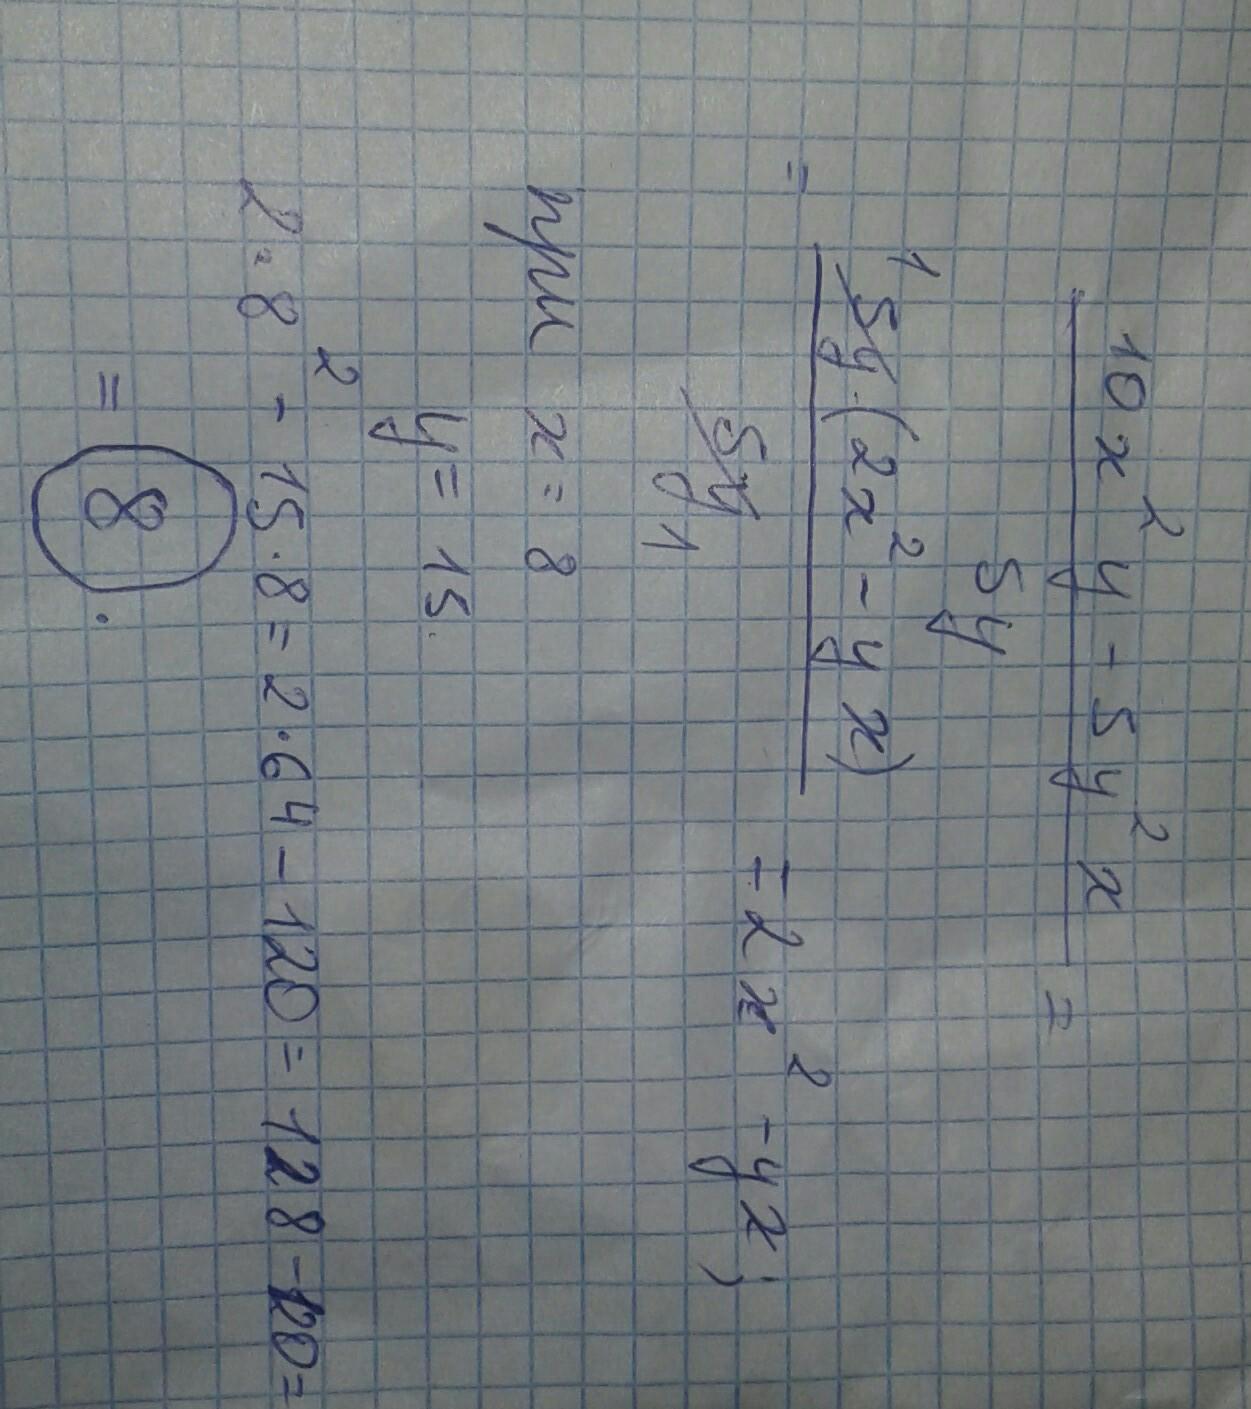 10x² y - 5y² x
=
5y
1
= 5y·(2x² - yx)
5y 1
= 2x² - yx;
при x = 8
y = 15.
2·8² - 15·8 = 2·64 - 120 = 128 - 120 =
= 8.